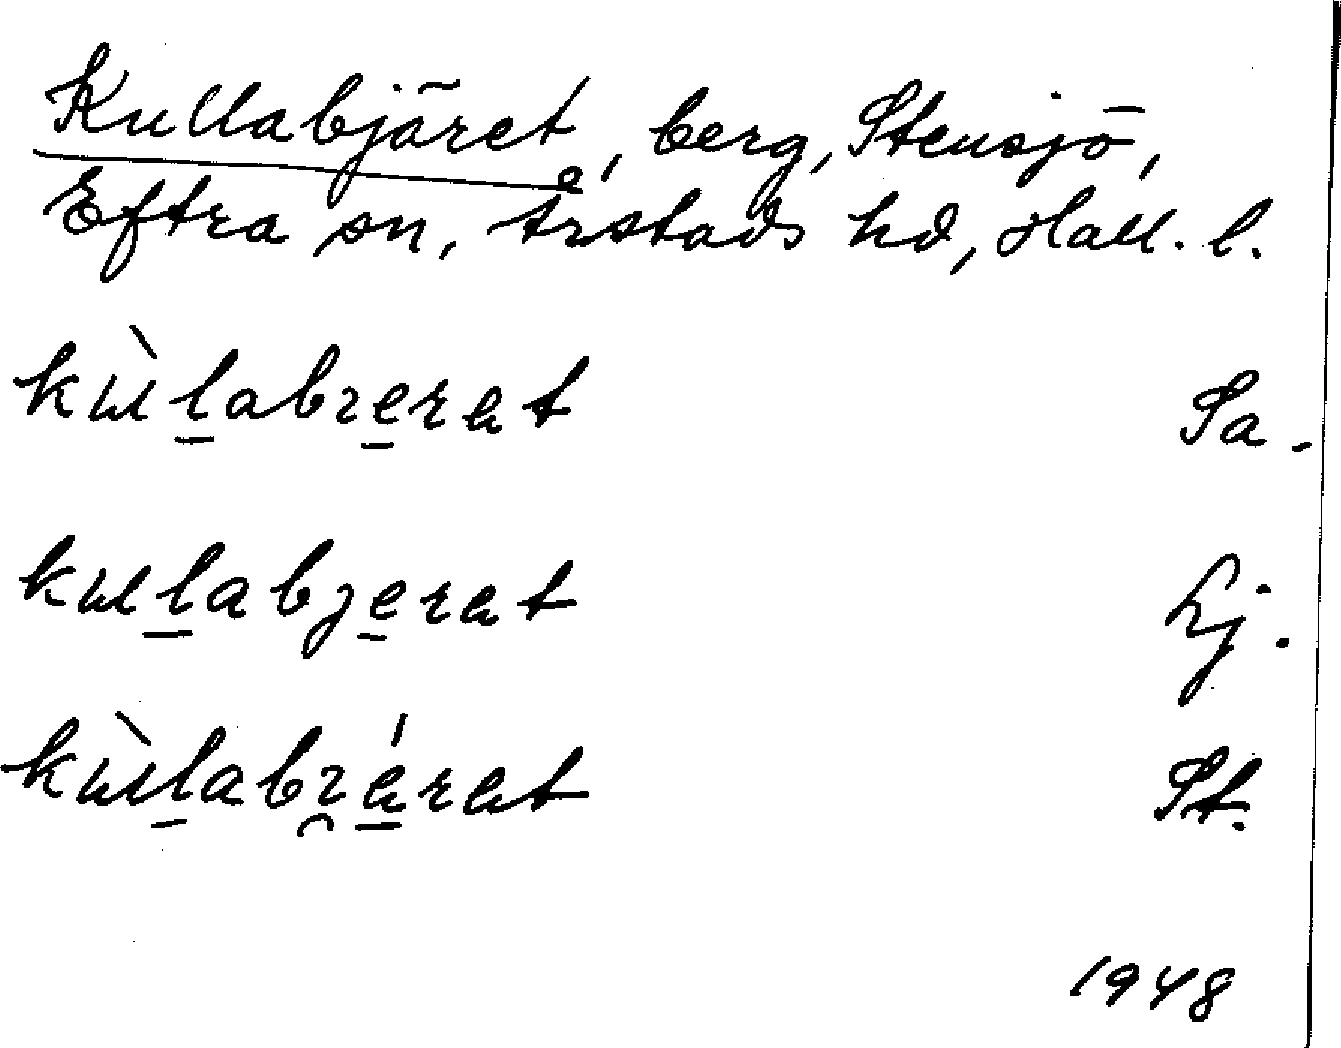 Kullabjäret, berg, Stensjö,
Eftra sn, Årstads hd, Hall. l.
kùlabɿerat Sa.
kulabȷerat Lj.
kùlabɿérat St.
1948